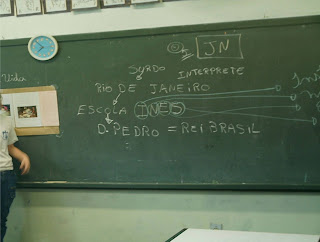 JN
SURDO
INTERPRETE
Vida
RIO DE JANEIRO
ESCOLA INES
D. PEDRO = REI BRASIL